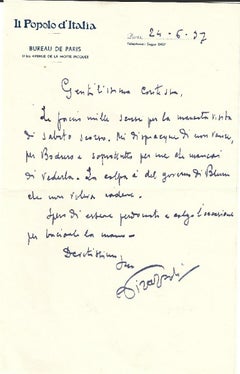 Il Popolo d'Italia
BUREAU DE PARIS
11 bis AVENUE DE LA MOTTE PICQUET
Paris, 24-6-37
Gentilissima Contessa,
Le faccio mille scuse per la mancata visita
di sabato scorso. Mi dispiacque di non venire,
per Bodrero e soprattutto per me che mancai
di vederla. La colpa è del governo di Blum
che non voleva cadere.
Spero di essere perdonato e colgo l'occasione
per baciarle la mano.
Devotissimo
Suo